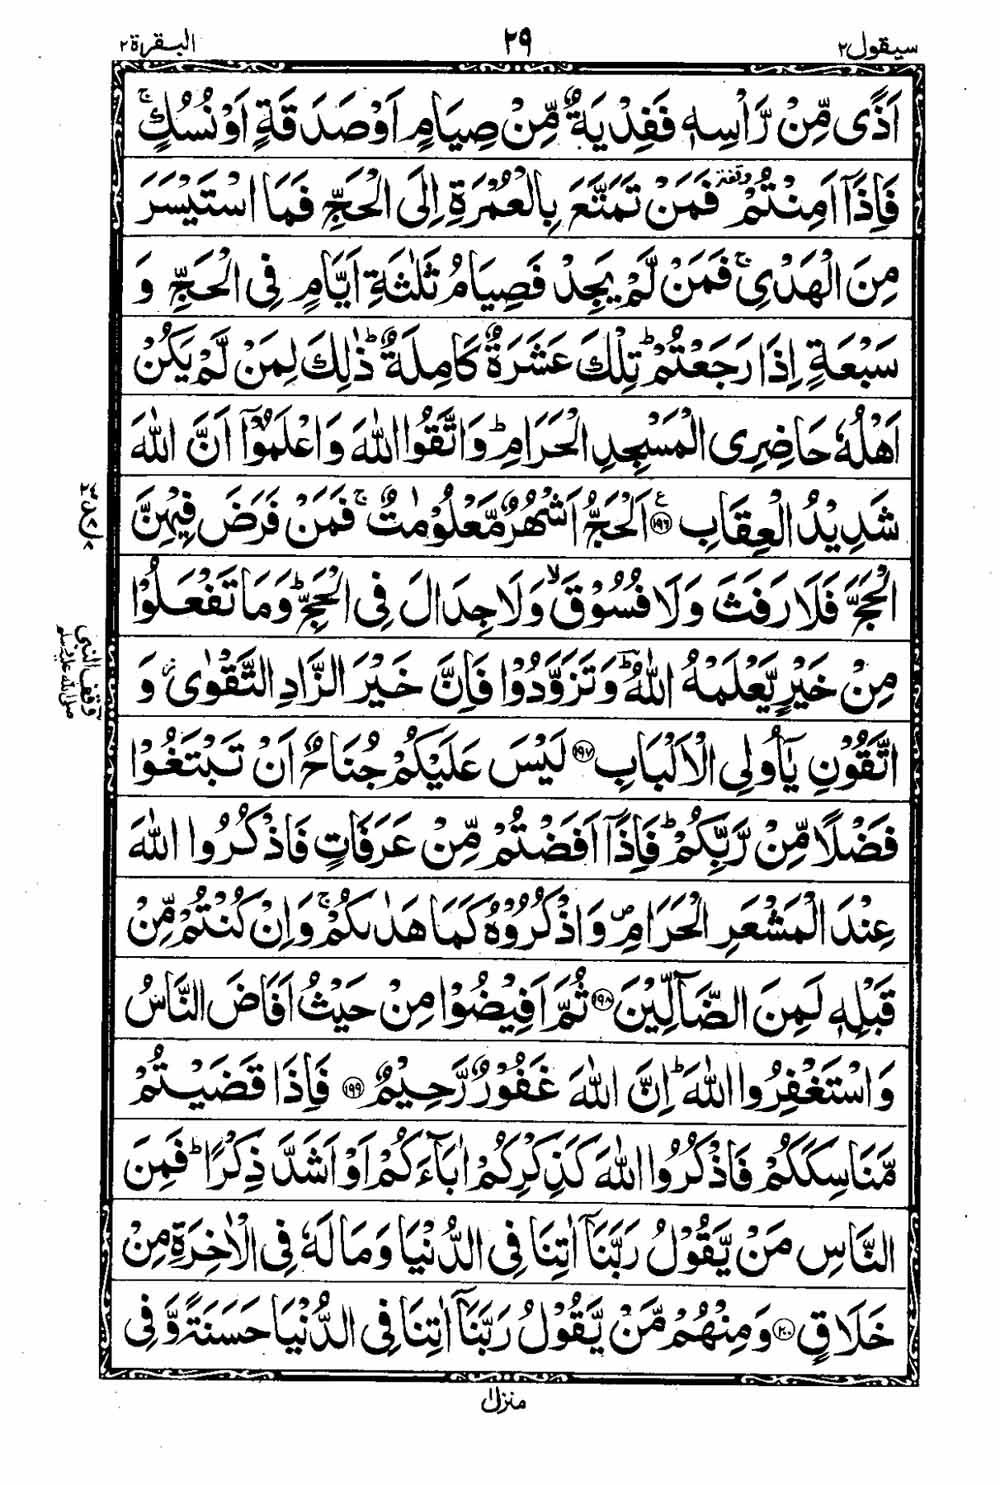 سيقول٢ ٢٩ البقرة٢
اَذًى مِّنْ رَّاْسِهٖ فَفِدْيَةٌ مِّنْ صِيَامٍ اَوْ صَدَقَةٍ اَوْ نُسُكٍ ۚ
فَاِذَاۤ اَمِنْتُمْ وقفة فَمَنْ تَمَتَّعَ بِالْعُمْرَةِ اِلَى الْحَجِّ فَمَا اسْتَيْسَرَ
مِنَ الْهَدْيِ ۚ فَمَنْ لَّمْ يَجِدْ فَصِيَامُ ثَلٰثَةِ اَيَّامٍ فِى الْحَجِّ وَ
سَبْعَةٍ اِذَا رَجَعْتُمْ ؕ تِلْكَ عَشَرَةٌ كَامِلَةٌ ؕ ذٰلِكَ لِمَنْ لَّمْ يَكُنْ
اَهْلُهٗ حَاضِرِى الْمَسْجِدِ الْحَرَامِ ؕ وَاتَّقُوا اللّٰهَ وَاعْلَمُوْۤا اَنَّ اللّٰهَ
شَدِيْدُ الْعِقَابِ ﴿١٩٦﴾ ع اَلْحَجُّ اَشْهُرٌ مَّعْلُوْمٰتٌ ۚ فَمَنْ فَرَضَ فِيْهِنَّ
الْحَجَّ فَلَا رَفَثَ وَلَا فُسُوْقَ ۙ وَلَا جِدَالَ فِى الْحَجِّ ؕ وَمَا تَفْعَلُوْا
مِنْ خَيْرٍ يَّعْلَمْهُ اللّٰهُ ؕ وَتَزَوَّدُوْا فَاِنَّ خَيْرَ الزَّادِ التَّقْوٰى ۫ وَ
اتَّقُوْنِ يٰۤاُولِى الْاَلْبَابِ ﴿١٩٧﴾ لَيْسَ عَلَيْكُمْ جُنَاحٌ اَنْ تَبْتَغُوْا
فَضْلًا مِّنْ رَّبِّكُمْ ؕ فَاِذَاۤ اَفَضْتُمْ مِّنْ عَرَفَاتٍ فَاذْكُرُوا اللّٰهَ
عِنْدَ الْمَشْعَرِ الْحَرَامِ ۪ وَاذْكُرُوْهُ كَمَا هَدٰىكُمْ ۚ وَاِنْ كُنْتُمْ مِّنْ
قَبْلِهٖ لَمِنَ الضَّآلِّيْنَ ﴿١٩٨﴾ ثُمَّ اَفِيْضُوْا مِنْ حَيْثُ اَفَاضَ النَّاسُ
وَاسْتَغْفِرُوا اللّٰهَ ؕ اِنَّ اللّٰهَ غَفُوْرٌ رَّحِيْمٌ ﴿١٩٩﴾ فَاِذَا قَضَيْتُمْ
مَّنَاسِكَكُمْ فَاذْكُرُوا اللّٰهَ كَذِكْرِكُمْ اٰبَآءَكُمْ اَوْ اَشَدَّ ذِكْرًا ؕ فَمِنَ
النَّاسِ مَنْ يَّقُوْلُ رَبَّنَاۤ اٰتِنَا فِى الدُّنْيَا وَمَا لَهٗ فِى الْاٰخِرَةِ مِنْ
خَلَاقٍ ﴿٢٠٠﴾ وَمِنْهُمْ مَّنْ يَّقُوْلُ رَبَّنَاۤ اٰتِنَا فِى الدُّنْيَا حَسَنَةً وَّ فِى
وقف النبى
صلى الله عليه وسلم
منزل١